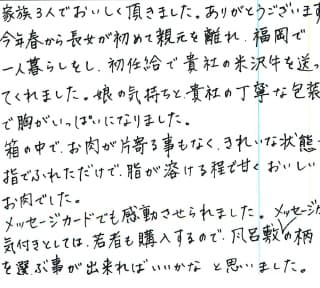 家族3人でおいしく頂きました。ありがとうございます
今年春から長女が初めて親元を離れ、福岡で
一人暮らしをし、初任給で貴社の米沢牛を送っ
てくれました。娘の気持ちと、貴社の丁寧な包装
で胸がいっぱいになりました。
箱の中で、お肉が片寄る事もなく、きれいな状態
指でふれただけで、脂が溶ける程で甘くおいしい
お肉でした。
メッセージカードでも感動させられました。メッセージカ
気付きとしては、若者も購入するので、風呂敷の柄
を選ぶ事が出来ればいいかなと思いました。